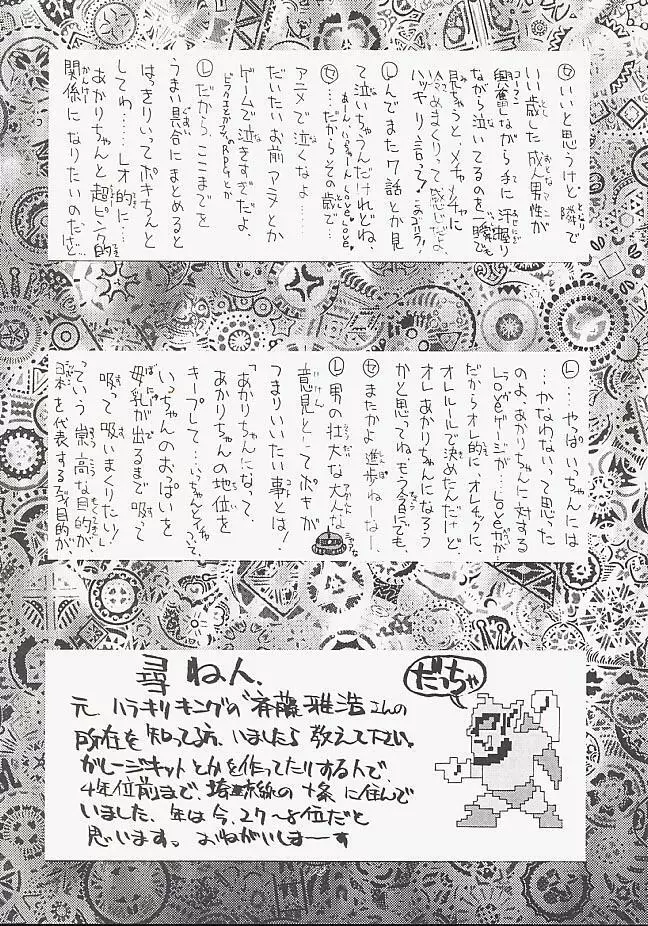 ㋝いいと思うけど隣で
いい歳した成人男性が
興奮しながら手に汗握り
ながら泣いてるのを一瞬でも
見ちゃうと、メチャメチャに
あまりって感じだよ、
ハッキリ言って!
Ⓛんでまた7話とか見
て泣いちゃうんだけれどね、
㋝…だからその歳で…
アニメで泣くなよ……
だいたいお前アニメとか
ゲームで泣きすぎだよ、
RPGとか
Ⓛだから ここまでを
うまい具合にまとめると
はっきりいってポキちんと
してわ……レオ的に……
あかりちゃんと超ピンク的
関係になりたいのだけど…
Ⓛ……やっぱいっちゃんには
…かなわないって思った
のよ、あかりちゃんに対する
Loveゲージが…Loveがが
だからオレ的に、オレチックに、
オレルールで決めたんだけど、
オレあかりちゃんになろう
かと思ってね、もう今日にでも、
㋝またかよ進歩ねーなー、
Ⓛ男の壮大な大人な
意見としてポキが
つまりいいたい事とは!
「あかりちゃんになって、
あかりちゃんの地位を
キープして、いっちゃんとイチャつって、
いっちゃんのおぱいを
母乳が出るまで吸って
吸って吸いまくりたい!」
っていう崇高な目的が、
日本を代表する目的が、
尋ねん、
元、ハラキリキングの斉藤雅浩さんの
所在を知ってる方、いましたら教えて下さい。
ガレージキットとかを作ってたりする人で、
4年位前まで、埼京線の十条に住んで
いました、年は今、27~8位だと
思います。おねがいしまーす
だっちゃ